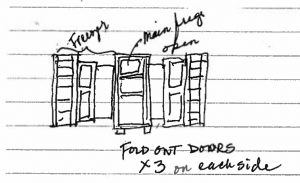 Freezer
Main fridge
open
FOLD OUT DOORS
x3 on each side